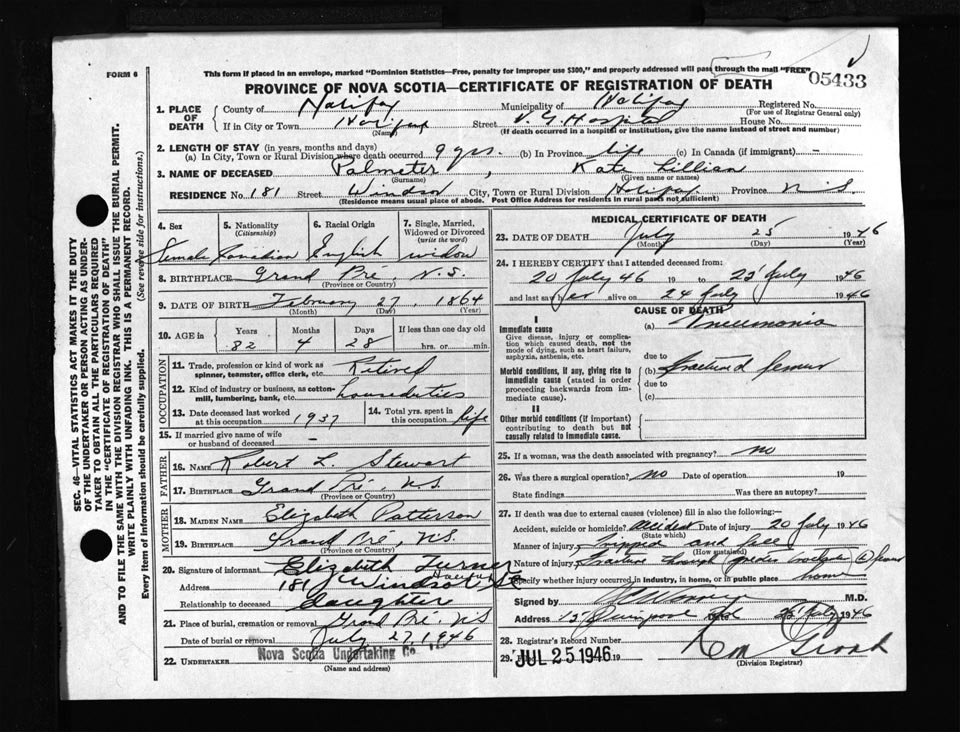 FORM 6
This form if placed in an envelope, marked "Dominion Statistics—Free, penalty for improper use $300," and properly addressed will pass through the mail "FREE"
05433
PROVINCE OF NOVA SCOTIA—CERTIFICATE OF REGISTRATION OF DEATH
1. PLACE OF DEATH
County of Halifax Municipality of Halifax Registered No.
(For use of Registrar General only)
If in City or Town Halifax Street V. G. Hospital House No.
(Name) (If death occurred in a hospital or institution, give the name instead of street and number)
2. LENGTH OF STAY (in years, months and days)
(a) In City, Town or Rural Division where death occurred 9 yrs. (b) In Province life (c) In Canada (if immigrant) -
3. NAME OF DECEASED Palmeter, Kate Lillian
(Surname) (Given name or names)
RESIDENCE No. 181 Street Windsor City, Town or Rural Division Halifax Province N.S.
(Residence means usual place of abode. Post Office Address for residents in rural parts not sufficient)
4. Sex 5. Nationality (Citizenship) 6. Racial Origin 7. Single, Married, Widowed or Divorced (write the word)
Female Canadian English widow
8. BIRTHPLACE Grand Pré, N.S.
(Province or Country)
9. DATE OF BIRTH February 27, 1864
(Month) (Day) (Year)
10. AGE in Years Months Days If less than one day old
82 4 28 hrs. or min.
OCCUPATION
11. Trade, profession or kind of work as spinner, teamster, office clerk, etc. Retired
12. Kind of industry or business, as cotton-mill, lumbering, bank, etc. house duties
13. Date deceased last worked at this occupation 1937 14. Total yrs. spent in this occupation life
15. If married give name of wife or husband of deceased -
FATHER
16. NAME Robert L. Stewart
17. BIRTHPLACE Grand Pré, N.S.
(Province or Country)
MOTHER
18. MAIDEN NAME Elizabeth Patterson
19. BIRTHPLACE Grand Pré, N.S.
(Province or Country)
20. Signature of informant Elizabeth Turner
Address 181 Windsor St Halifax
Relationship to deceased daughter
21. Place of burial, cremation or removal Grand Pré, N.S
Date of burial or removal July 27, 1946
22. UNDERTAKER Nova Scotia Undertaking Co.
(Name and address)
MEDICAL CERTIFICATE OF DEATH
23. DATE OF DEATH July 25 1946
(Month) (Day) (Year)
24. I HEREBY CERTIFY that I attended deceased from:
20 July 46 19 to 25 July 1946
and last saw her alive on 24 July 1946
CAUSE OF DEATH
I
Immediate cause (a) Pneumonia
Give disease, injury or complication which caused death, not the mode of dying, such as heart failure, asphyxia, asthenia, etc.
due to
Morbid conditions, if any, giving rise to immediate cause (stated in order proceeding backwards from immediate cause).
(b) fractured femur
due to
(c)
II
Other morbid conditions (if important) contributing to death but not causally related to immediate cause.
25. If a woman, was the death associated with pregnancy? no
26. Was there a surgical operation? no Date of operation 19
State findings Was there an autopsy?
27. If death was due to external causes (violence) fill in also the following:
Accident, suicide or homicide? Accident Date of injury 20 July 1946
(State which)
Manner of injury Tripped and fell
(How sustained)
Nature of injury fracture through greater trochanter
Specify whether injury occurred in industry, in home, or in public place home
Signed by M.D.
Address Date 25 July 1946
28. Registrar's Record Number
29. JUL 25 1946 19
(Division Registrar)
SEC. 46—VITAL STATISTICS ACT MAKES IT THE DUTY
OF THE UNDERTAKER OR PERSON ACTING AS UNDER-
TAKER TO OBTAIN ALL THE PARTICULARS REQUIRED
IN THE "CERTIFICATE OF REGISTRATION OF DEATH"
AND TO FILE THE SAME WITH THE DIVISION REGISTRAR WHO SHALL ISSUE THE BURIAL PERMIT.
WRITE PLAINLY WITH UNFADING INK. THIS IS A PERMANENT RECORD.
Every item of information should be carefully supplied. (See reverse side for instructions.)